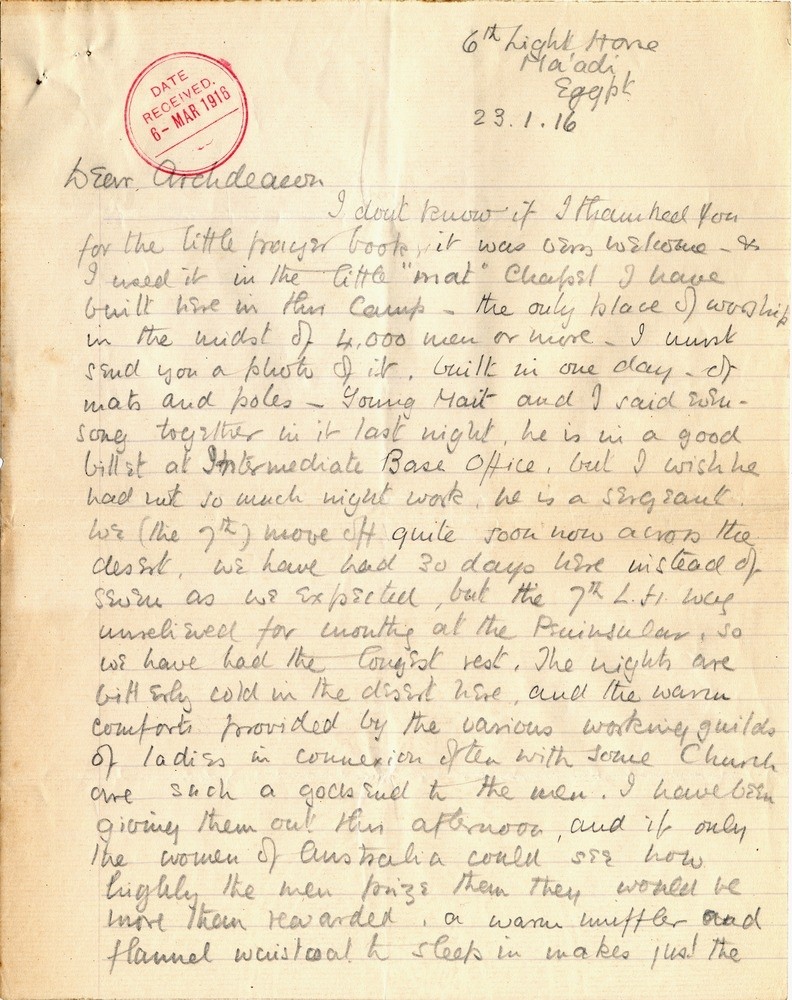 6th Light Horse
Ma'adi
Egypt
23.1.16
DATE
RECEIVED.
6- MAR 1916
Dear Archdeacon
I dont know if I thanked you
for the little prayer book, it was very welcome - &
I used it in the little "mat" Chapel I have
built here in this Camp - the only place of worship
in the midst of 4,000 men or more - I must
send you a photo of it, built in one day - of
mats and poles - Young and I said even-
song together in it last night, he is in a good
billet at Intermediate Base Office, but I wish he
had not so much night work, he is a sergeant.
We (the 7th) move off quite soon now across the
desert, we have had 30 days here instead of
seven as we expected, but the 7th L.H. was
unrelieved for months at the Peninsular, so
we have had the longest rest. The nights are
bitterly cold in the desert here, and the warm
comforts provided by the various working guilds
of ladies in connexion often with some Church
are such a godsend to the men. I have been
giving them out this afternoon, and if only
the women of Australia could see how
highly the men prize them they would be
more than rewarded, a warm muffler and
flannel waistcoat to sleep in makes just the